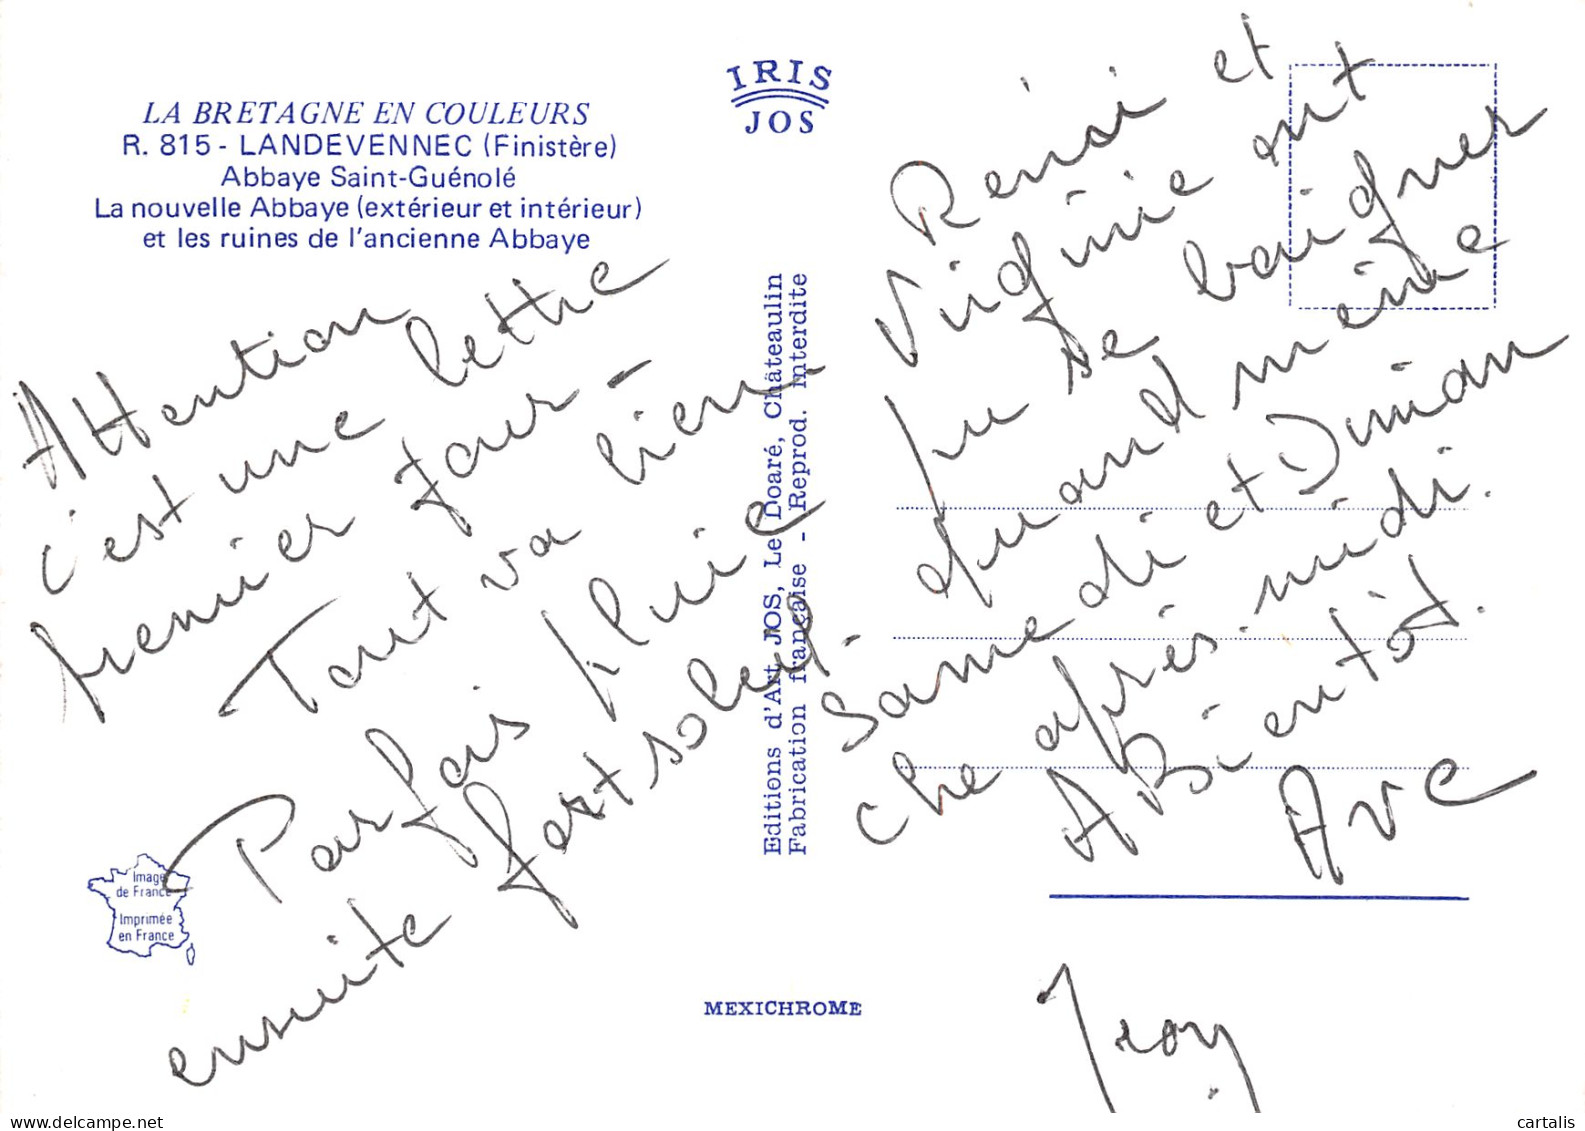 LA BRETAGNE EN COULEURS
R. 815 - LANDEVENNEC (Finistère)
Abbaye Saint-Guénolé
La nouvelle Abbaye (extérieur et intérieur)
et les ruines de l'ancienne Abbaye
IRIS
JOS
Attention
c'est une lettre
premier jour -
Tout va bien
Parfois pluie
ensuite fort soleil.
Editions d'Art JOS, Le Doaré, Châteaulin
Fabrication française - Reprod. interdite
et
Virginie ont
pu se baigner
quand même
Samedi et Diman
che après-midi.
A Bientôt.
Image
de France
Imprimée
en France
MEXICHROME
cartalis
delcampe.net